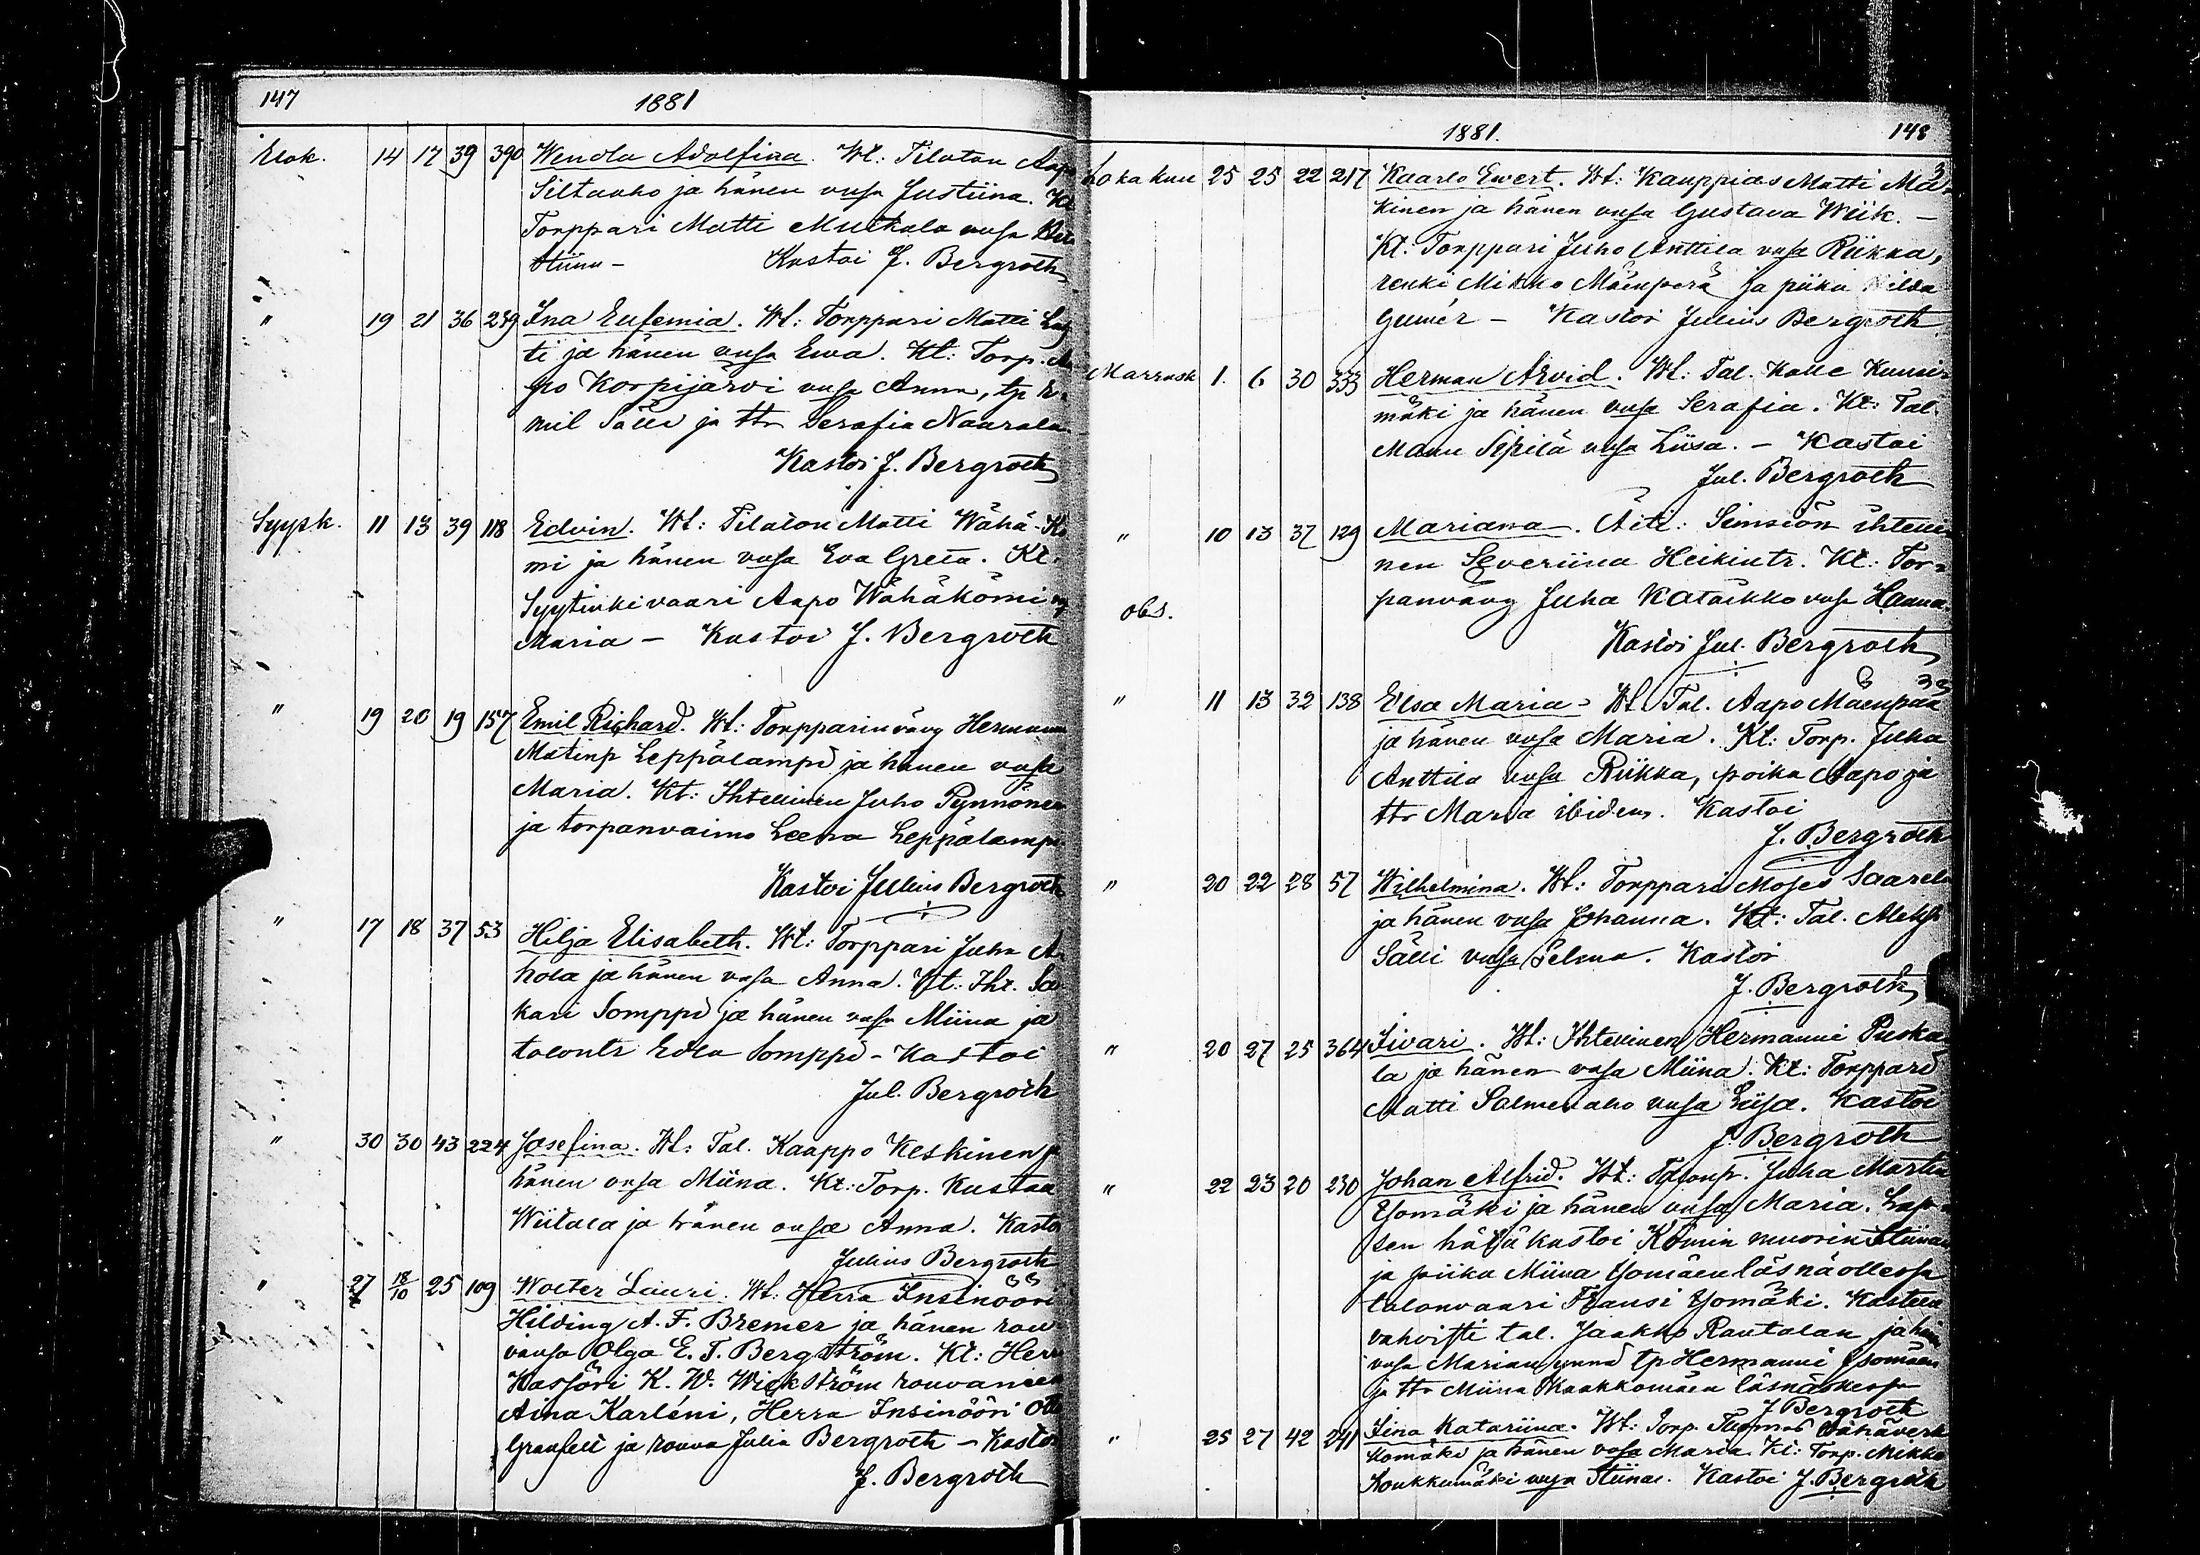 147 1881
Elok. 14 17 39 390 Wendla Adolfina. Wt: Tilaton Aapo
Siltaaho ja hänen vmsa Justiina. Kt
Torppari Matti Mutkala vmsa
Stiina - Kastoi J. Bergroth
" 19 21 36 239 Ina Eufemia. Wt: Torppari Matti
ti ja hänen vmsa Ewa. Kt: Torp. Aa
po Korpijärvi vmsa Anna, tp E
mil Sälli ja ttr Serafia Naarala
Kastoi J. Bergroth
Syysk. 11 13 39 118 Edvin. Wt: Tilaton Matti Wähä-Kö
mi ja hänen vmsa Eva Greta. Kt.
Syytinkivaari Aapo Wähäkömi
Maria - Kastoi J. Bergroth
" 19 20 19 157 Emil Richard. Wt: Torpparinvävy Hermanni
Matinp Leppälampi ja hänen vmsa
Maria. Kt: Ihtellinen Juho Pynnönen
ja torpanvaimo Leena Leppälampi
Kastoi Julius Bergroth
" 17 18 37 53 Hilja Elisabeth. Wt: Torppari Juha A
hola ja hänen vmsa Anna. Kt: Iht. Sa
kari Somppi ja hänen vmsa Miina ja
talontr Edla Somppi - Kastoi
Jul. Bergroth
" 30 30 43 224 Josefina. Wt: Tal. Kaappo Keskinen ja
hänen vmsa Miina. Kt: Torp. Kustaa
Wiitala ja hänen vmsa Anna. Kastoi
Julius Bergroth
" 27 18/10 25 109 Wolter Lauri. Wt: Herra Insinööri
Hilding A. F. Bremer ja hänen rou
vansa Olga E. T. Bergström. Kt: Herra
Kassöri K. W. Wickström rouvaneen
Aina Karléni, Herra Insinööri Otto
Granfelt ja rouva Julia Bergroth - Kastoi
J. Bergroth
1881. 148
Lokakuu 25 25 22 217 Kaarlo Ewert. Wt: Kauppias Matti Mä=
kinen ja hänen vmsa Gustava Wiik. -
Kt: Torppari Juho Anttila vmsa Riikka,
renki Mikko Mäenperä ja piika Hilda
- Kastoi Julius Bergroth
Marrask 1. 6 30 333 Herman Arvid. Wt: Tal. Kalle
mäki ja hänen vmsa Serafia. Kt: Tal.
Manu Sipilä vmsa Liisa. - Kastoi
Jul. Bergroth
" 10 13 37 129 Mariana. Äiti: Simsiön ihtelli
nen Severiina Heikintr. Kt: Tor=
panvävy Juha Katäikko vmsa Hanna.
obs.
Kastoi Jul. Bergroth
" 11 13 32 138 Elsa Maria - Wt. Tal. Aapo Mäenpää
ja hänen vmsa Maria. Kt: Torp. Juha
Anttila vmsa Riikka, poika Aapo ja
ttr Maria ibidem. Kastoi
J. Bergroth
" 20 22 28 57 Wilhelmina. Wt: Torppari Moses Saarela
ja hänen vmsa Johanna. Kt: Tal. Aleksi
Sälli vmsa Selma. Kastoi
J. Bergroth
" 20 27 25 364 Iivari. Wt: Ihtellinen Hermanni Puska
la ja hänen vmsa Miina. Kt: Torppari
Matti Salmenaho vmsa Liisa. Kastoi
J. Bergroth
" 22 23 20 230 Johan Alfrid. Wt: Talonp. Juha Martin
Yomäki ja hänen vmsa Maria. Lap=
sen hätäkastoi Kömin muorin Stiinan
ja piika Miina Yomäen läsnäollessa
talonvaari Fransi Yomäki. Kasteen
vahvisti tal. Jaakko Rautalan ja hänen
vmsa Marian ynnä tp Hermanni Isomäen
ja ttr Miina Kaakkomäen läsnäollessa
J. Bergroth
" 25 27 42 241 Iina Katariina. Wt: Torp. Tuomas Wähäverk
komäki ja hänen vmsa Maria. Kt: Torp. Mikko
Koukkumäki vmsa Stiina. Kastoi J. Bergroth